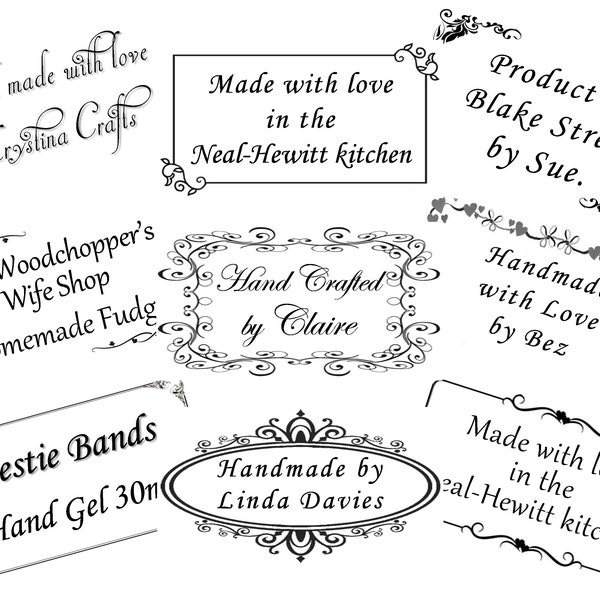 made with love
Krystina Crafts
Made with love
in the
Neal-Hewitt kitchen
Product
Blake Stre
by Sue.
Woodchopper's
Wife Shop
omemade Fudg
Hand Crafted
by Claire
Handmade
with Love
by Bez
estie Bands
Hand Gel 30m
Handmade by
Linda Davies
Made with lo
in the
eal-Hewitt kitc